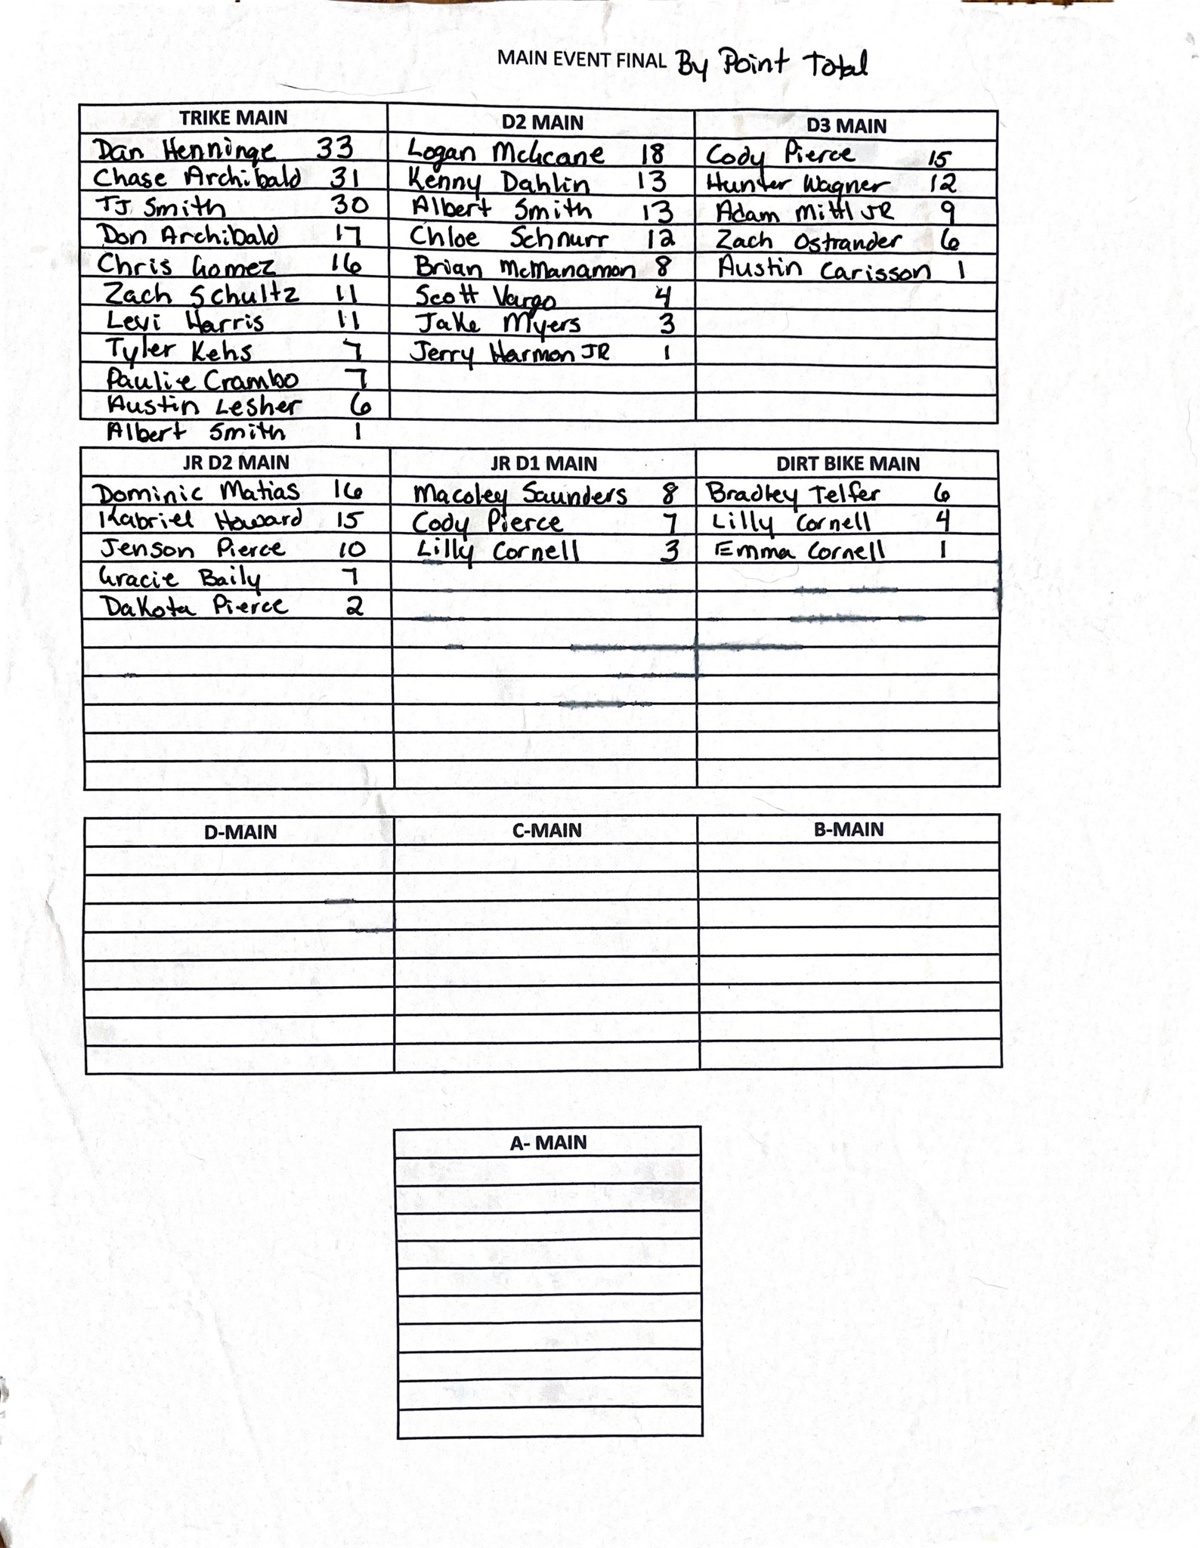 MAIN EVENT FINAL By Point Total
TRIKE MAIN
Dan Henninge 33
Chase Archibald 31
TJ Smith 30
Don Archibald 17
Chris Gomez 16
Zach Schultz 11
Levi Harris 11
Tyler Kehs 7
Paulie Crambo 7
Austin Lesher 6
Albert Smith 1
D2 MAIN
Logan 18
Kenny Dahlin 13
Albert Smith 13
Chloe Schnurr 12
Brian McManamon 8
Scott Vargo 4
Jake Myers 3
Jerry Harmon JR 1
D3 MAIN
Cody Pierce 15
Hunter Wagner 12
Adam Mittl JR 9
Zach Ostrander 6
Austin Carisson 1
JR D2 MAIN
Dominic Matias 16
Kabriel Howard 15
Jenson Pierce 10
Gracie Baily 7
Dakota Pierce 2
JR D1 MAIN
Macoley Saunders 8
Cody Pierce 7
Lilly Cornell 3
DIRT BIKE MAIN
Bradley Telfer 6
Lilly Cornell 4
Emma Cornell 1
D-MAIN
C-MAIN
B-MAIN
A- MAIN